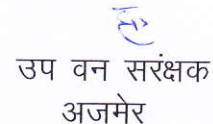 उप वन सरंक्षक
अजमेर